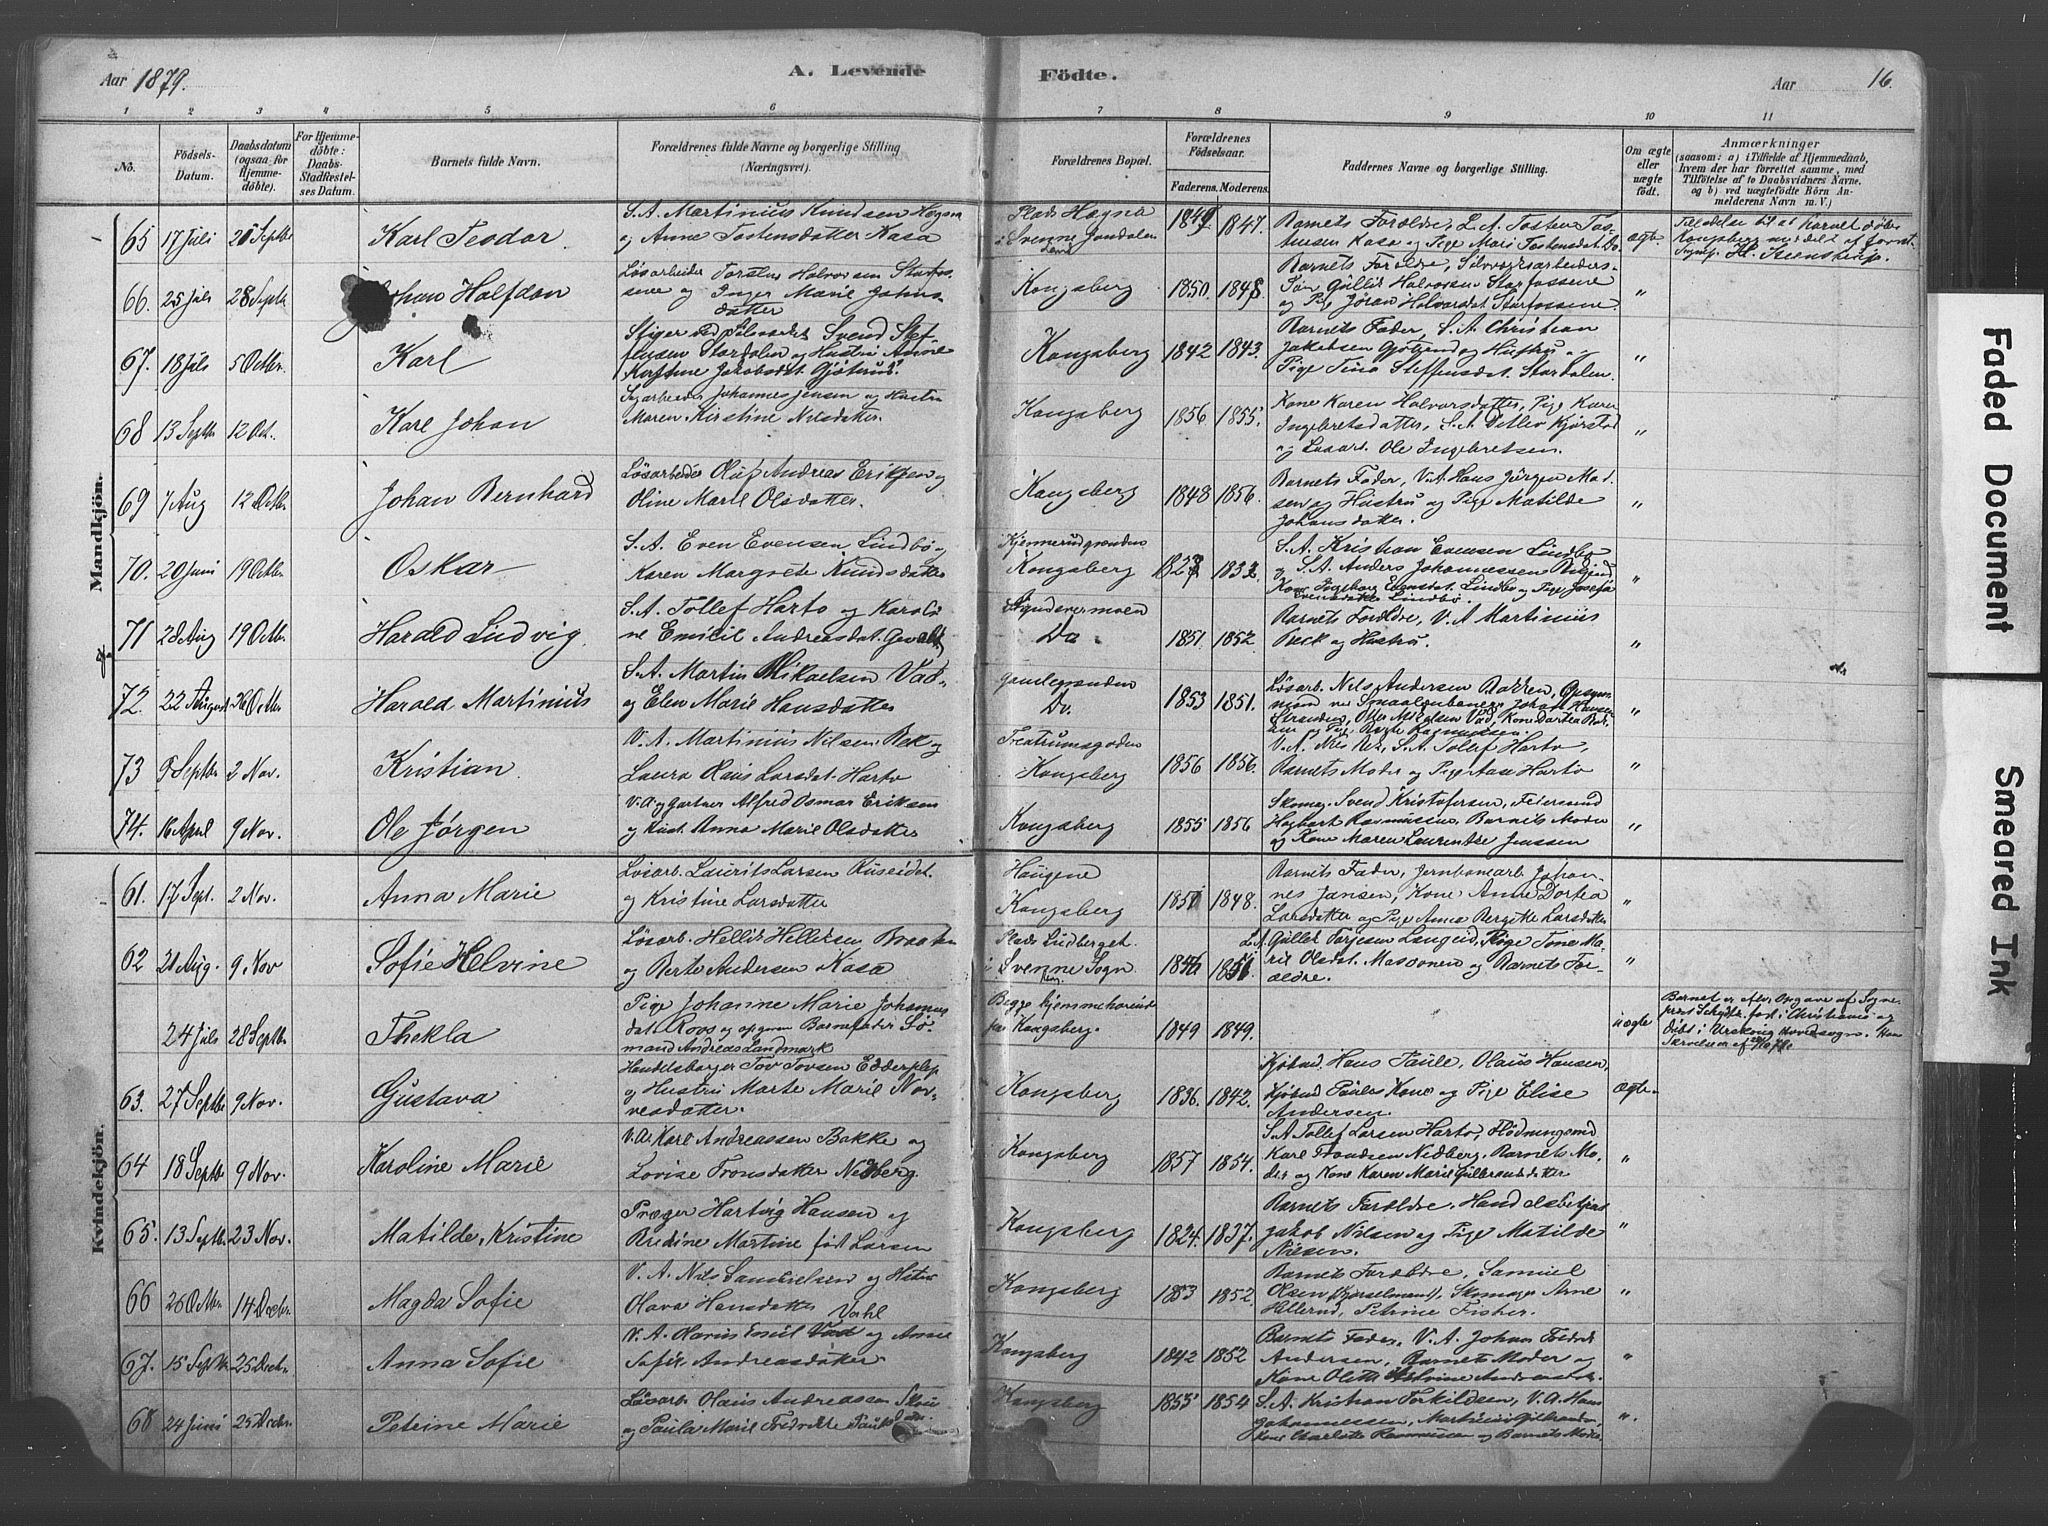 Aar 1879. A. Levende Födte. Aar 16.
1 2 3 4 5 6 7 8 9 10 11
No. Födsels-Datum. Daabsdatum (ogsaa for Hjemme-döbte). For Hjemme-döbte: Daabs-Stadfæstel-ses Datum. Barnets fulde Navn. Forældrenes fulde Navne og borgerlige Stilling (Næringsvei). Forældrenes Bopæl. Forældrenes Födselsaar. Faderens. Moderens. Faddernes Navne og borgerlige Stilling. Om ægte eller uægte födt. Anmærkninger (saasom: a) i Tilfælde af Hjemmedaab, hvem der har forrettet samme, med Tilföielse af to Daabsvidners Navne, og b) ved uægtefödte Börn An-melderens Navn m. V.)
Mandkjön.
65 17 Juli 28 Septbr Karl Teodor. S.A. Martinius Knudsen Hagsna og Anne Tostensdatter Kasa Plads Hagsna i Svenne Jondalen 1849 1847. Barnets Forældre, L.A. Tosten Tostensen Kasa og Pige Mari Tostensdat. Do ægte Tilladelse til at Barnet döbes Kongsberg meddelt af
66. 25 Juli 28 Septbr Johan Halfdan Løsarbeider Torsten Halvorsen Storfossene og Inger Marie Johnsdatter Kongsberg 1850. 1848. Barnets Forældre, Sølvverksarbeiders Søn Gullik Halvorsen Storfossene og Pige Jøran Halvorsdat. Storfossene. "
67. 18 Juli 5 Octbr. Karl Stiger ved Sølvverket Svend Steffensen Stordalen og Hustru Anne Kirstine Jakobsdat. Gjøterud. Kongsberg 1842 1843. Barnets Fader, S.A. Christian Jakobsen Gjøterud og Hustru og Pige Tina Steffensdat. Stordalen. "
68 13 Septbr 12 Oct. Karl Johan Johannes Jensen og Hustru Maren Kirstine Nilsdatter. Kongsberg 1856 1855. Kone Karen Halvorsdatter, Pige Karen Ingebretsdatter, S.A. Detlev Kjørstad og Løsarb. Ole Ingebretsen. "
69 7 Aug 12 Octbr. Johan Bernhard Løsarbeider Oluf Andreas Eriksen og Oline Marie Olsdatter. Kongsberg 1848 1856. Barnets Fader, V.A. Hans Jørgen Madsen og Hustru og Pige Matilde Johansdatter. "
70. 20 Juni 19 Octbr. Oskar S.A. Even Evensen Lindbø og Karen Margrete Knudsdatter Kjennerudgrænden Kongsberg 1827 1833. S.A. Kristian Evensen Lindbø og S.A. Anders Johannessen Kone Ingeborg Evensdat. Lindbø og Pige Josefa Evensdatter Lindbø. "
71 28 Aug 19 Octbr. Harald Ludvig. S.A. Tollef Harto og Karoline Emilie Andreasdat. Do. 1851. 1852. Barnets Forældre, V.A Martinius Bek og Hustru. "
72. 22 August 26 Octbr Harald Martinius S.A. Martin Mikaelsen Vad og Elen Marie Hansdatter Gamlegrænden Do. 1853 1851. Løsarb. Nils Andersen Bakken, Johan Hansen Stranden, "
73 Septbr 2 Nov. Kristian V.A. Martinius Nilsen Bek og Laura Olaus Larsdat. Harto Kongsberg 1856 1856. V.A. Nils Bek, S.A. Tollef Harto, Barnets Moder og Pige Harto "
74. 16 April 9 Nov. Ole Jørgen V.A. og Gartner Alfred Osmar Eriksen og Hust. Anna Marie Olsdatter Kongsberg 1855 1856 Skomag. Svend Kristofersen, Feiersvend Hagbart Rasmussen, Barnets Moder og Kone Maren Laurentse Jenssen "
Kvindekjön.
61. 17 Sept. 2 Nov. Anna Marie Løsarb. Laurits Larsen Ruseidet og Kristine Larsdatter Haugene Kongsberg 1851 1848. Barnets Fader, Jernbanearb. Johannes Jansen, Kone Anne Dortea Larsdatter og Pige Anna Bergitte Larsdatter "
62 21 Aug. 9 Nov Sofie Helvine Løsarb. Hellik Helliksen Braaten og Berte Andersen Kasa Plads Lidberget i Svenne Sogn 1846 1851. L.A. Gullik Torjesen Langeid, Pige Tone Marie Olsdat. Masovnen og Barnets Forældre. "
24 Juli 28 Septbr. Thekla Pige Johanne Marie Johannesdat. Roos og opgiven Barnefader Sømand Andreas Landmark Begge Hjemmehørende paa Kongsberg. 1849 1849. uægte Barnet er efter Opgave af Sogneprest Schydtz født i Christiania og døbt i
63. 27 Septbr 9 Nov. Gustava Handelsborger Tov Tovsen og Hustru Marte Marie Kongsberg 1836. 1842. Kjøbmd. Hans Paule, Olaus Hansen, Kjøbmd Paules Kone og Pige Elise Andersen. ægte
64 18 Septbr 9 Nov. Karoline Marie V.A. Karl Andreassen Bakke og Lovise Tronsdatter Nedberg. Kongsberg 1857 1854. S.A Tollef Larsen Harto, Karl Trondsen Nedberg, Barnets Moder og Kone Karen Marie Gulbrandsdatter "
65. 13 Septbr 23 Nov. Matilde Kristine Præger Hartvig Hansen og Bredine Martine født Larsen Kongsberg 1824. 1837. Barnets Forældre. Handelsbetjent Jakob Nilsen og Pige Matilde Nilsen. "
66 26 Octbr. 14 Decbr. Magda Sofie V.A. Nils Samuelsen og Hustru Olava Hansdatter Vahl Kongsberg 1853 1852. Barnets Forældre, Samuel Olsen (Kjørselmand), Skomager Arne Hellerud, Petrine Fisher. "
67. 15 Septbr 25 Decbr. Anna Sofie V.A. Olavus Emil Vad og Anne Sofie Andreasdatter Kongsberg 1842 1852 Barnets Fader, V.A. Johan Fredrik Andersen, Barnets Moder og Kone "
68 24 Juni 25 Decbr. Petrine Marie Løsarb. Olaus Andreassen og Paula Marie Fredrikke Kongsberg 1855 1854 S.A. Kristian Torkildsen, V.A. Hans Johannessen, Kone Charlotte Rasmussen og Barnets Moder. "
Faded Document
Smeared Ink